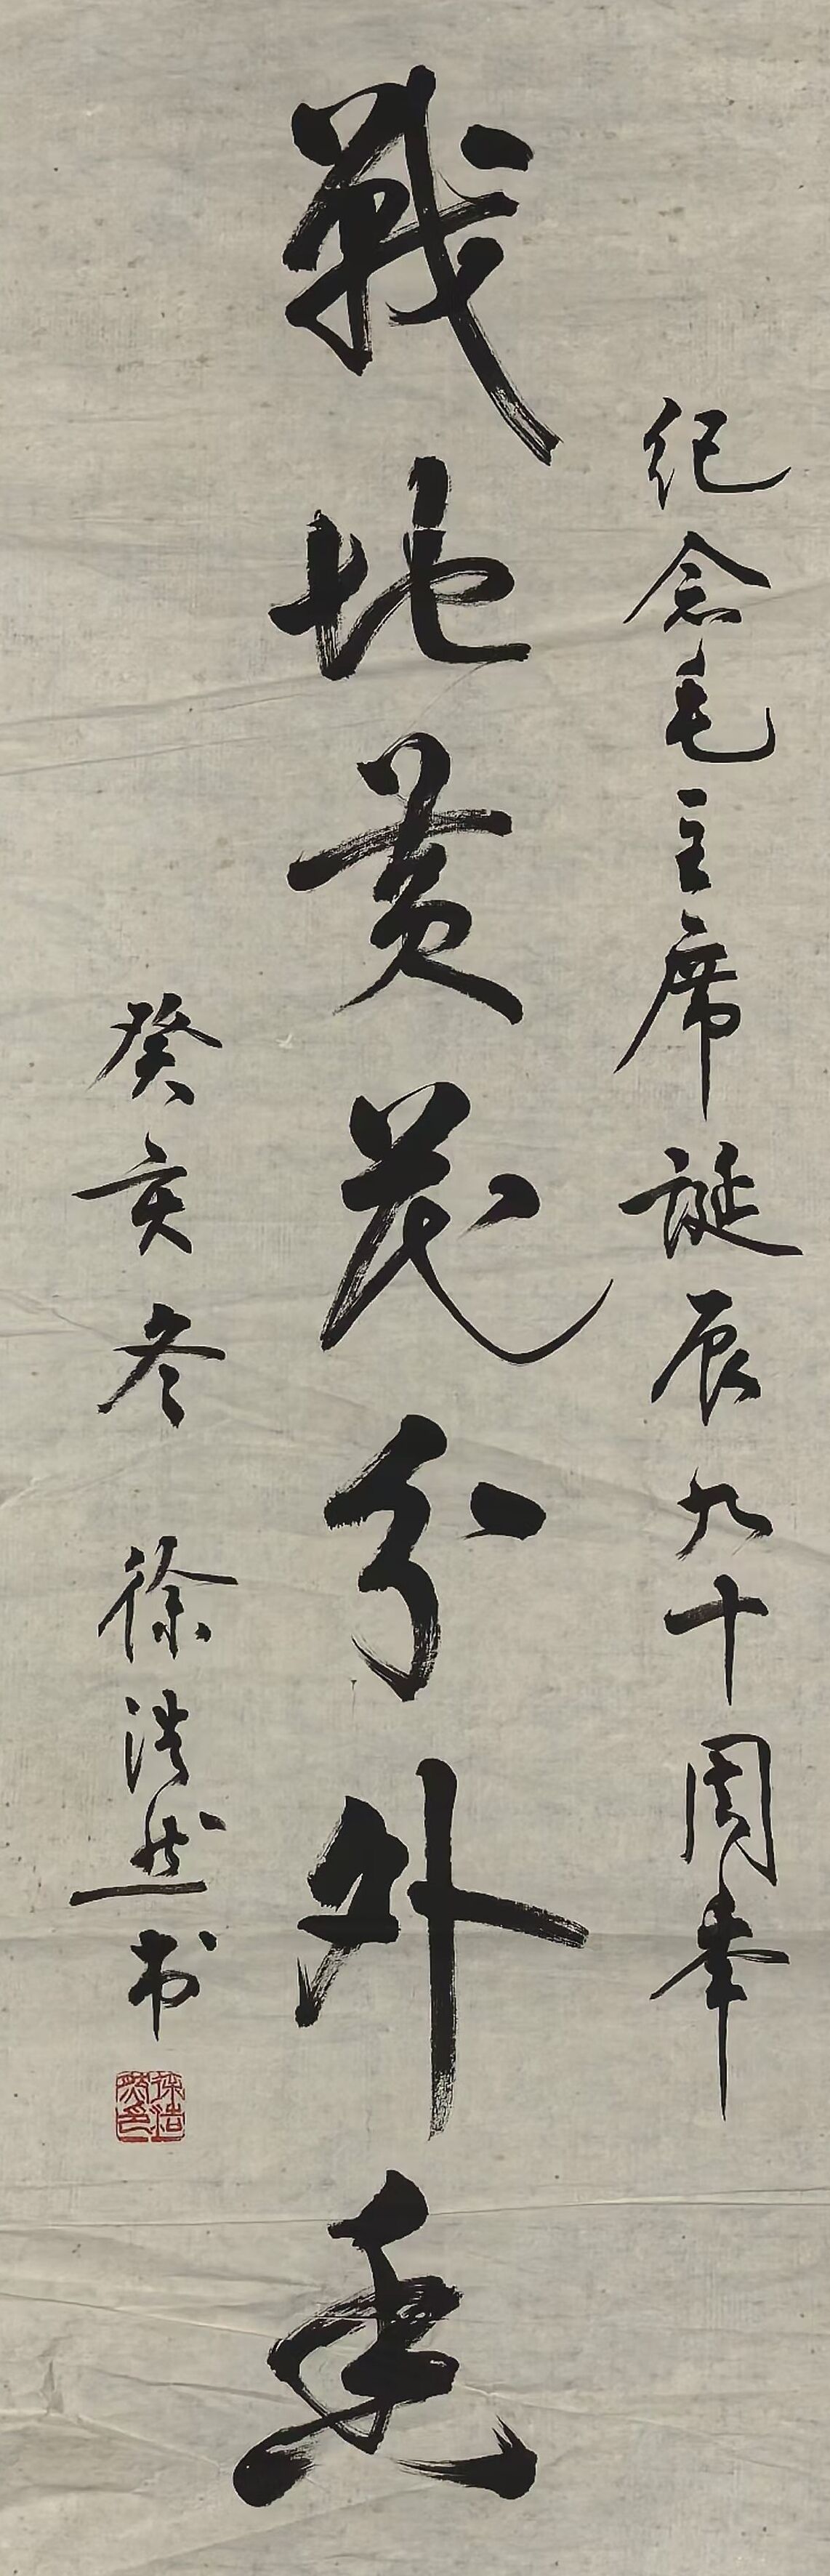 纪念毛主席诞辰九十周年
戰地黄花分外香
癸亥冬 徐浩然书
徐浩然印